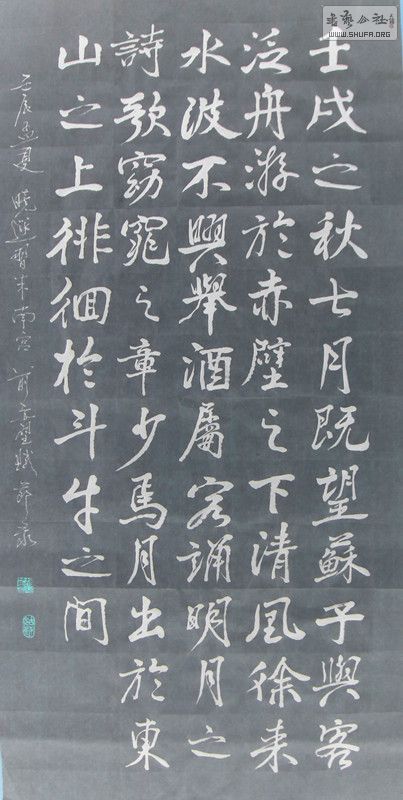 書藝公社
WWW.SHUFA.ORG
壬戌之秋七月既望蘇子與客
泛舟游於赤壁之下清風徐来
水波不興舉酒屬客誦明月之
詩歌窈窕之章少焉月出於東
山之上徘徊於斗牛之間
壬辰孟夏 習米南宫 前赤壁賦 節录